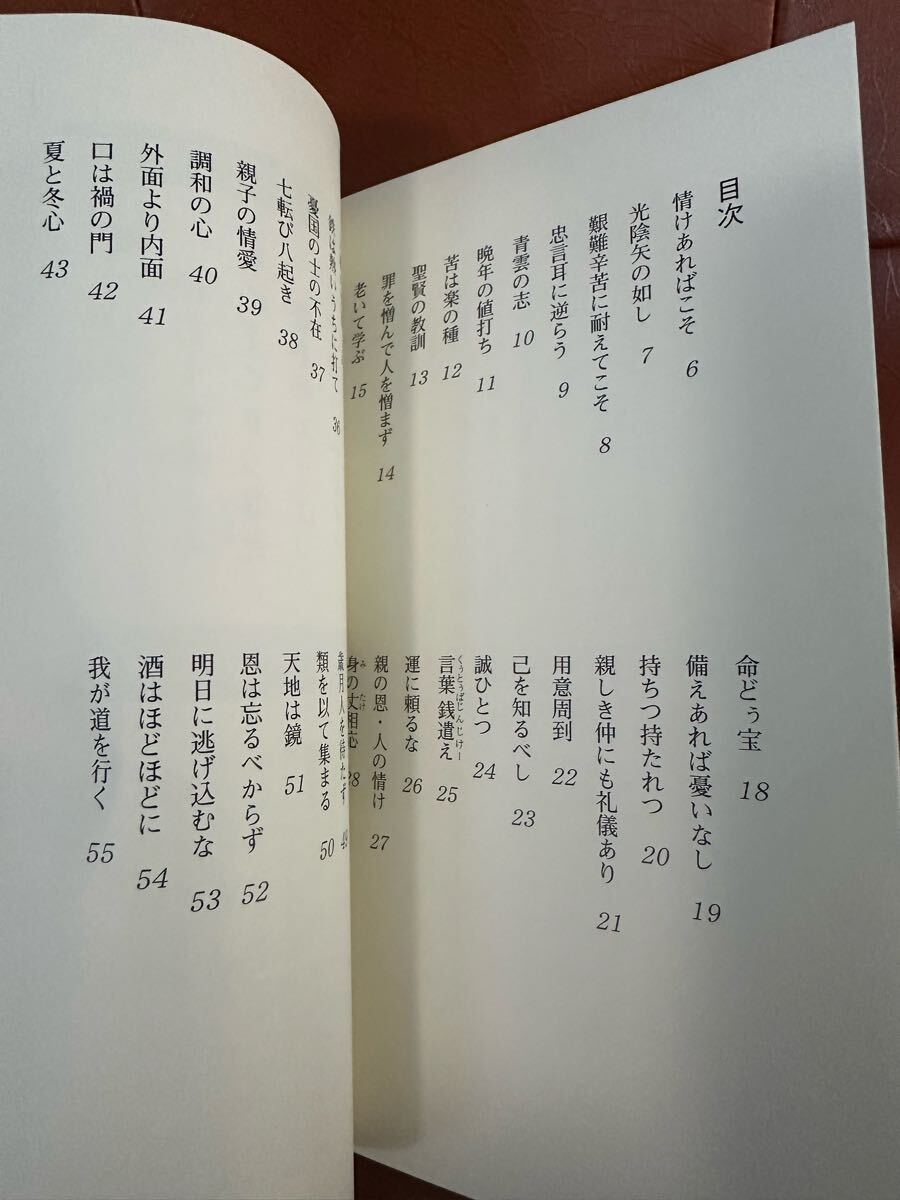 目次
情けあればこそ 6
光陰矢の如し 7
艱難辛苦に耐えてこそ 8
忠言耳に逆らう 9
青雲の志 10
晩年の値打ち 11
苦は楽の種 12
聖賢の教訓 13
罪を憎んで人を憎まず 14
老いて学ぶ 15
命どぅ宝 18
備えあれば憂いなし 19
持ちつ持たれつ 20
親しき仲にも礼儀あり 21
用意周到 22
己を知るべし 23
誠ひとつ 24
言葉銭遣え 25
くぅとぅばじんじけー
運に頼るな 26
親の恩・人の情け 27
身の丈相応 28
み たけ
うちに打て 36
憂国の士の不在 37
七転び八起き 38
親子の情愛 39
調和の心 40
外面より内面 41
口は禍の門 42
夏と冬心 43
歳月人を待たず 49
類を以て集まる 50
天地は鏡 51
恩は忘るべからず 52
明日に逃げ込むな 53
酒はほどほどに 54
我が道を行く 55